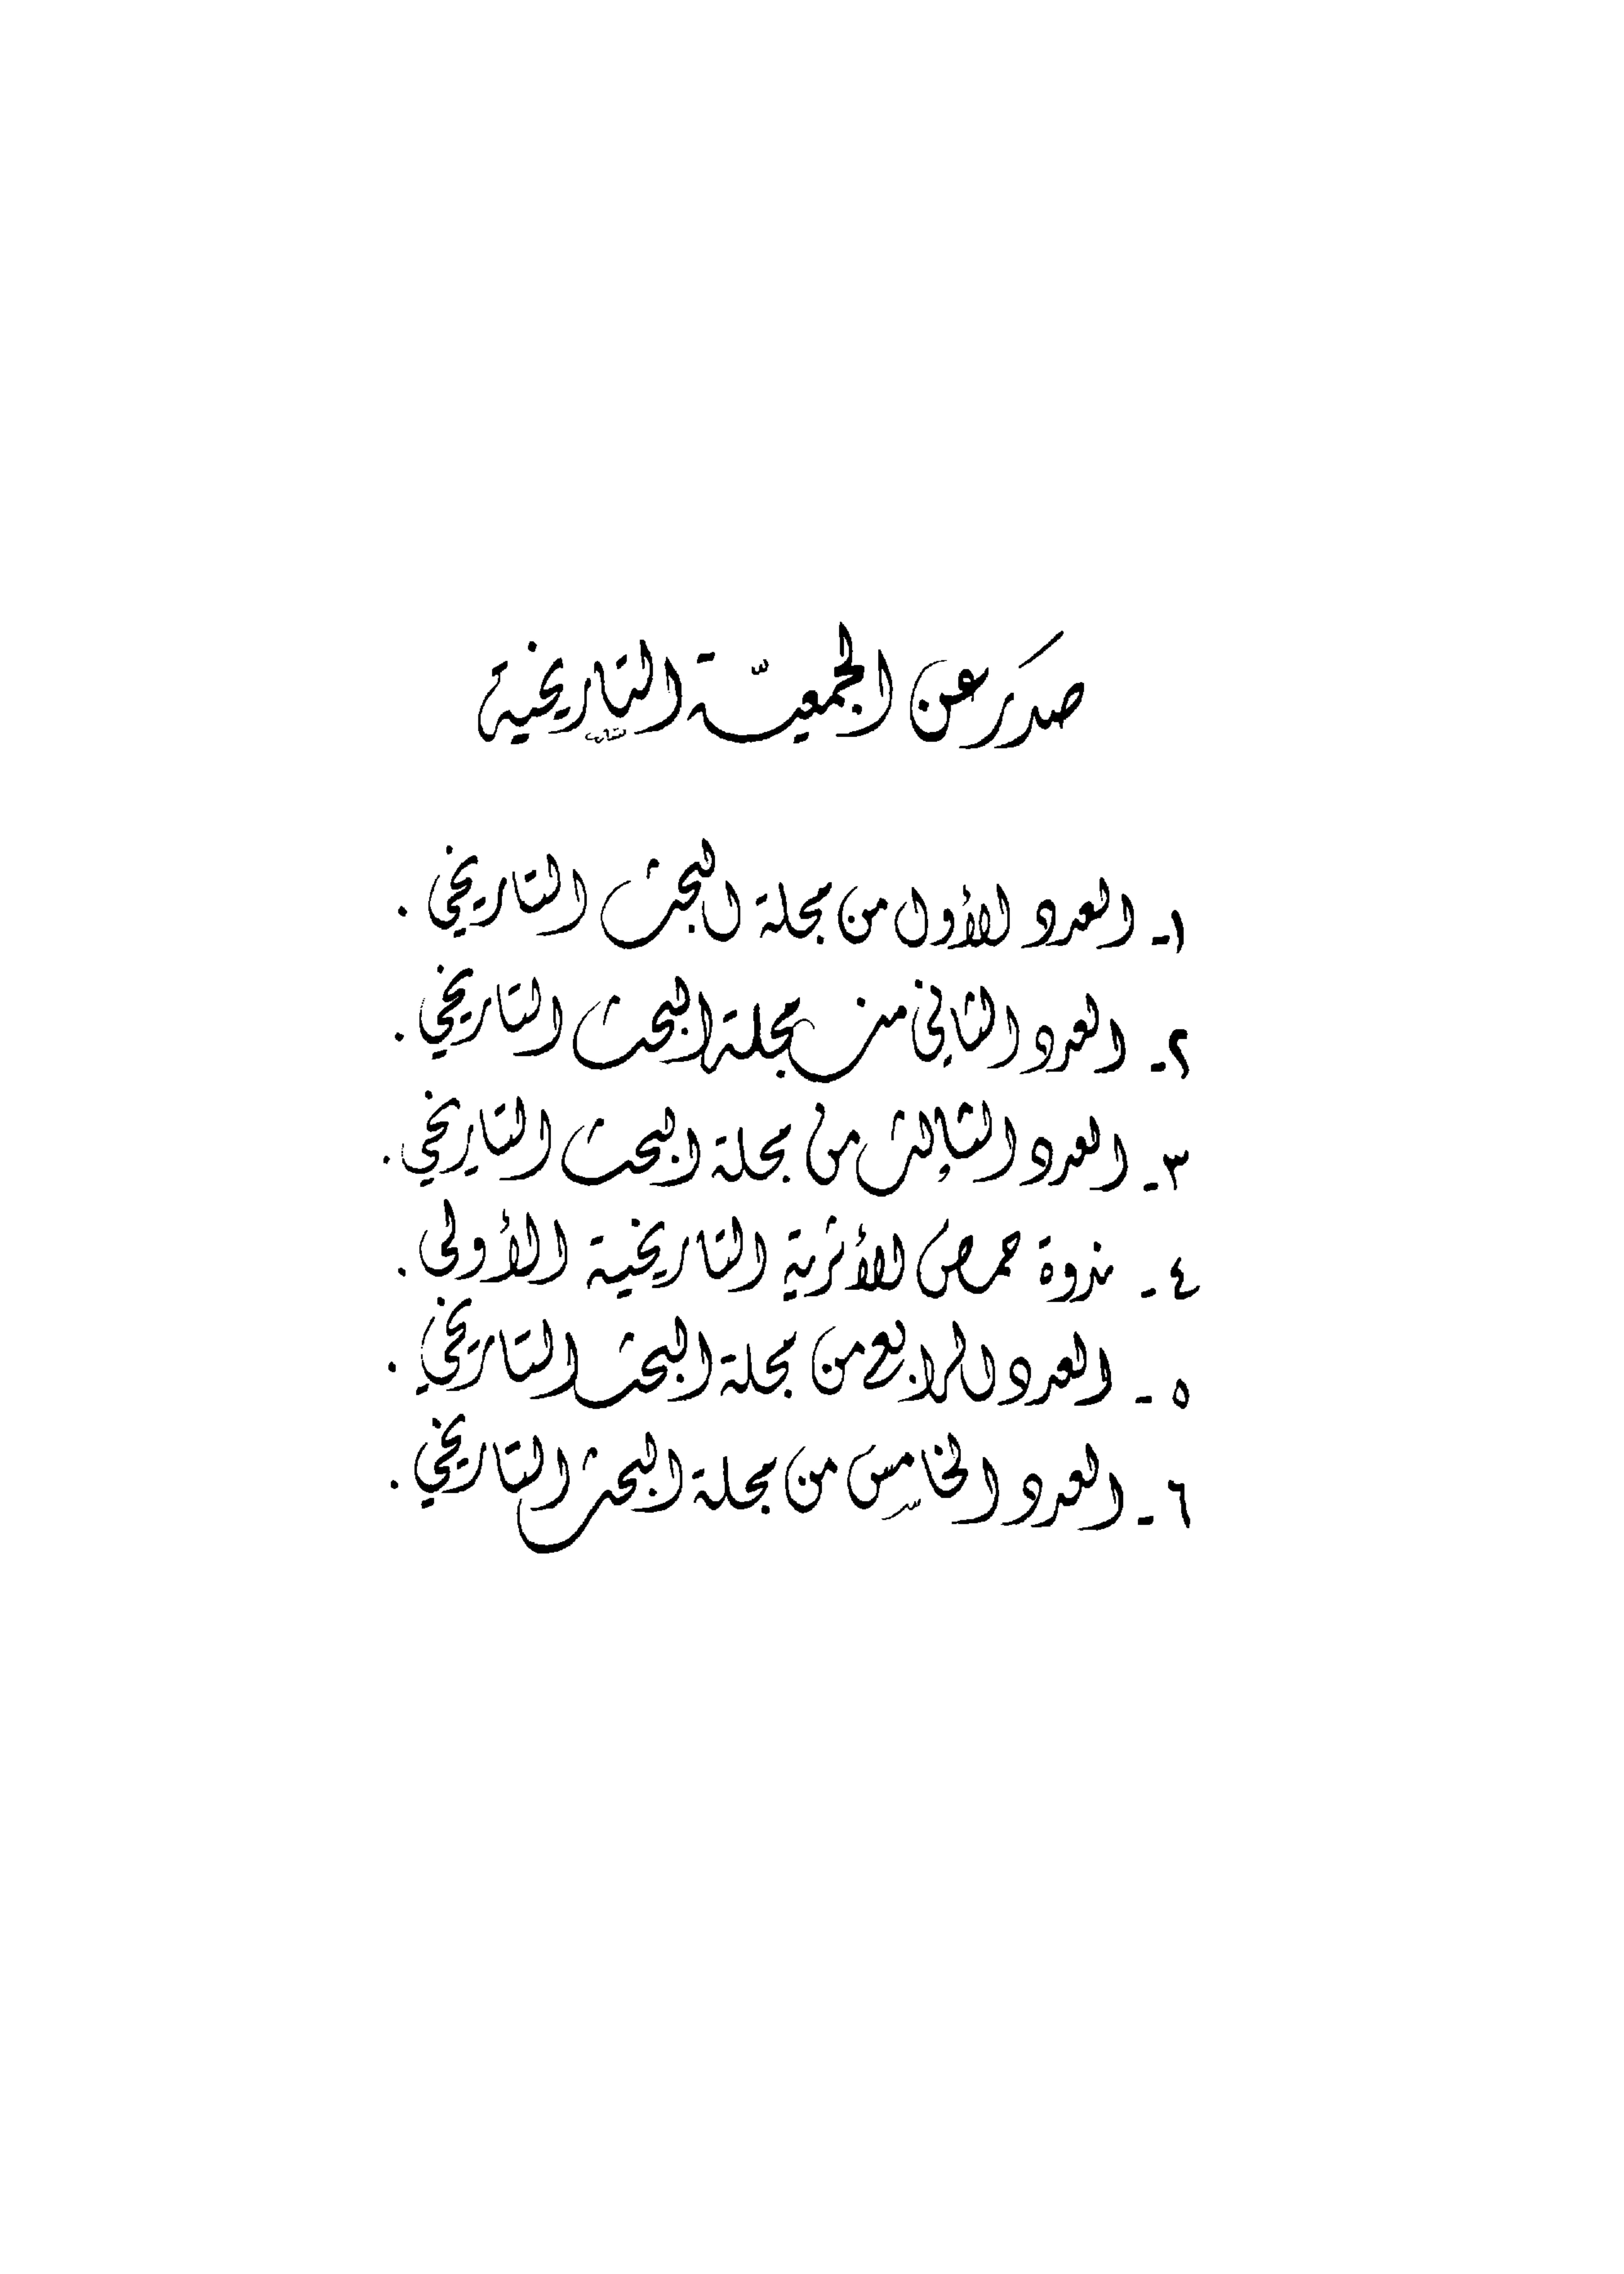 صدَر عن الجمعيّة التاريخية
١- العدد الأول من مجلة البحث التاريخي .
٢- العدد الثاني من مجلة البحث التاريخي .
٣- العدد الثالث من مجلة البحث التاريخي .
٤- ندوة حمص الأثرية التاريخية الأولى .
٥- العدد الرابع من مجلة البحث التاريخي .
٦- العدد الخامس من مجلة البحث التاريخي .